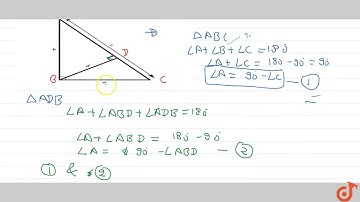 △ABC
∠A+∠B+∠C = 180
∠A+∠C = 180-90 = 90
∠A = 90-∠C — ①
D
B
C
△ADB
∠A+∠ABD+∠ADB = 180
∠A+∠ABD = 180-90
∠A = 90-∠ABD — ②
① & ②